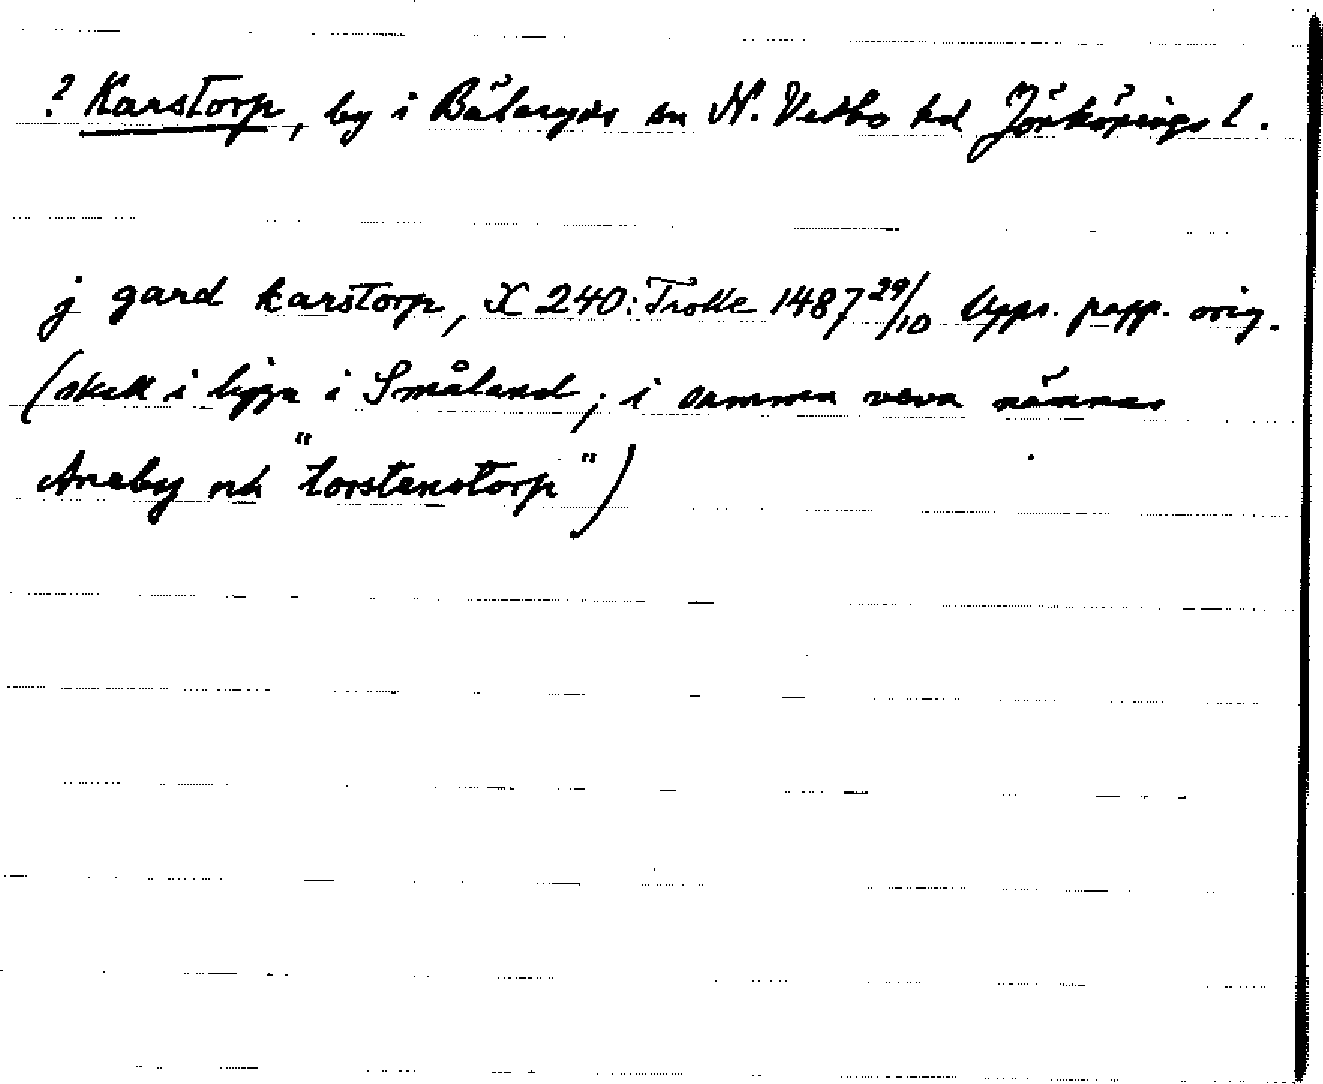 ? Karstorp, by i Bälaryds sn N. Vedbo hd Jönköpings l.
j gard karstorp, X 240: Trolle 1487 29/10 Upps. papp. orig.
(skall i ligga i Småland; i samma veva nämnes
Aneby och "torstenstorp")